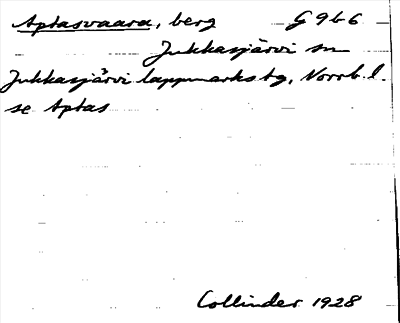 Aptasvaara, berg G9b6
Jukkasjärvi sn
Jukkasjärvi lappmarks tg, Norrb. l.
se Aptas
Collinder 1928